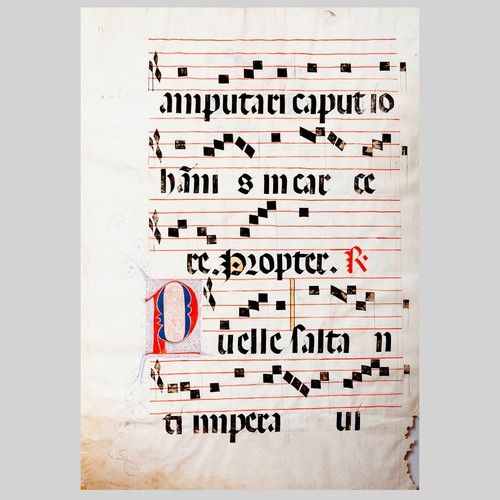 amputari caput io
hāni s in car ce
re. Propter. R
Puelle salta n
ti impera ui